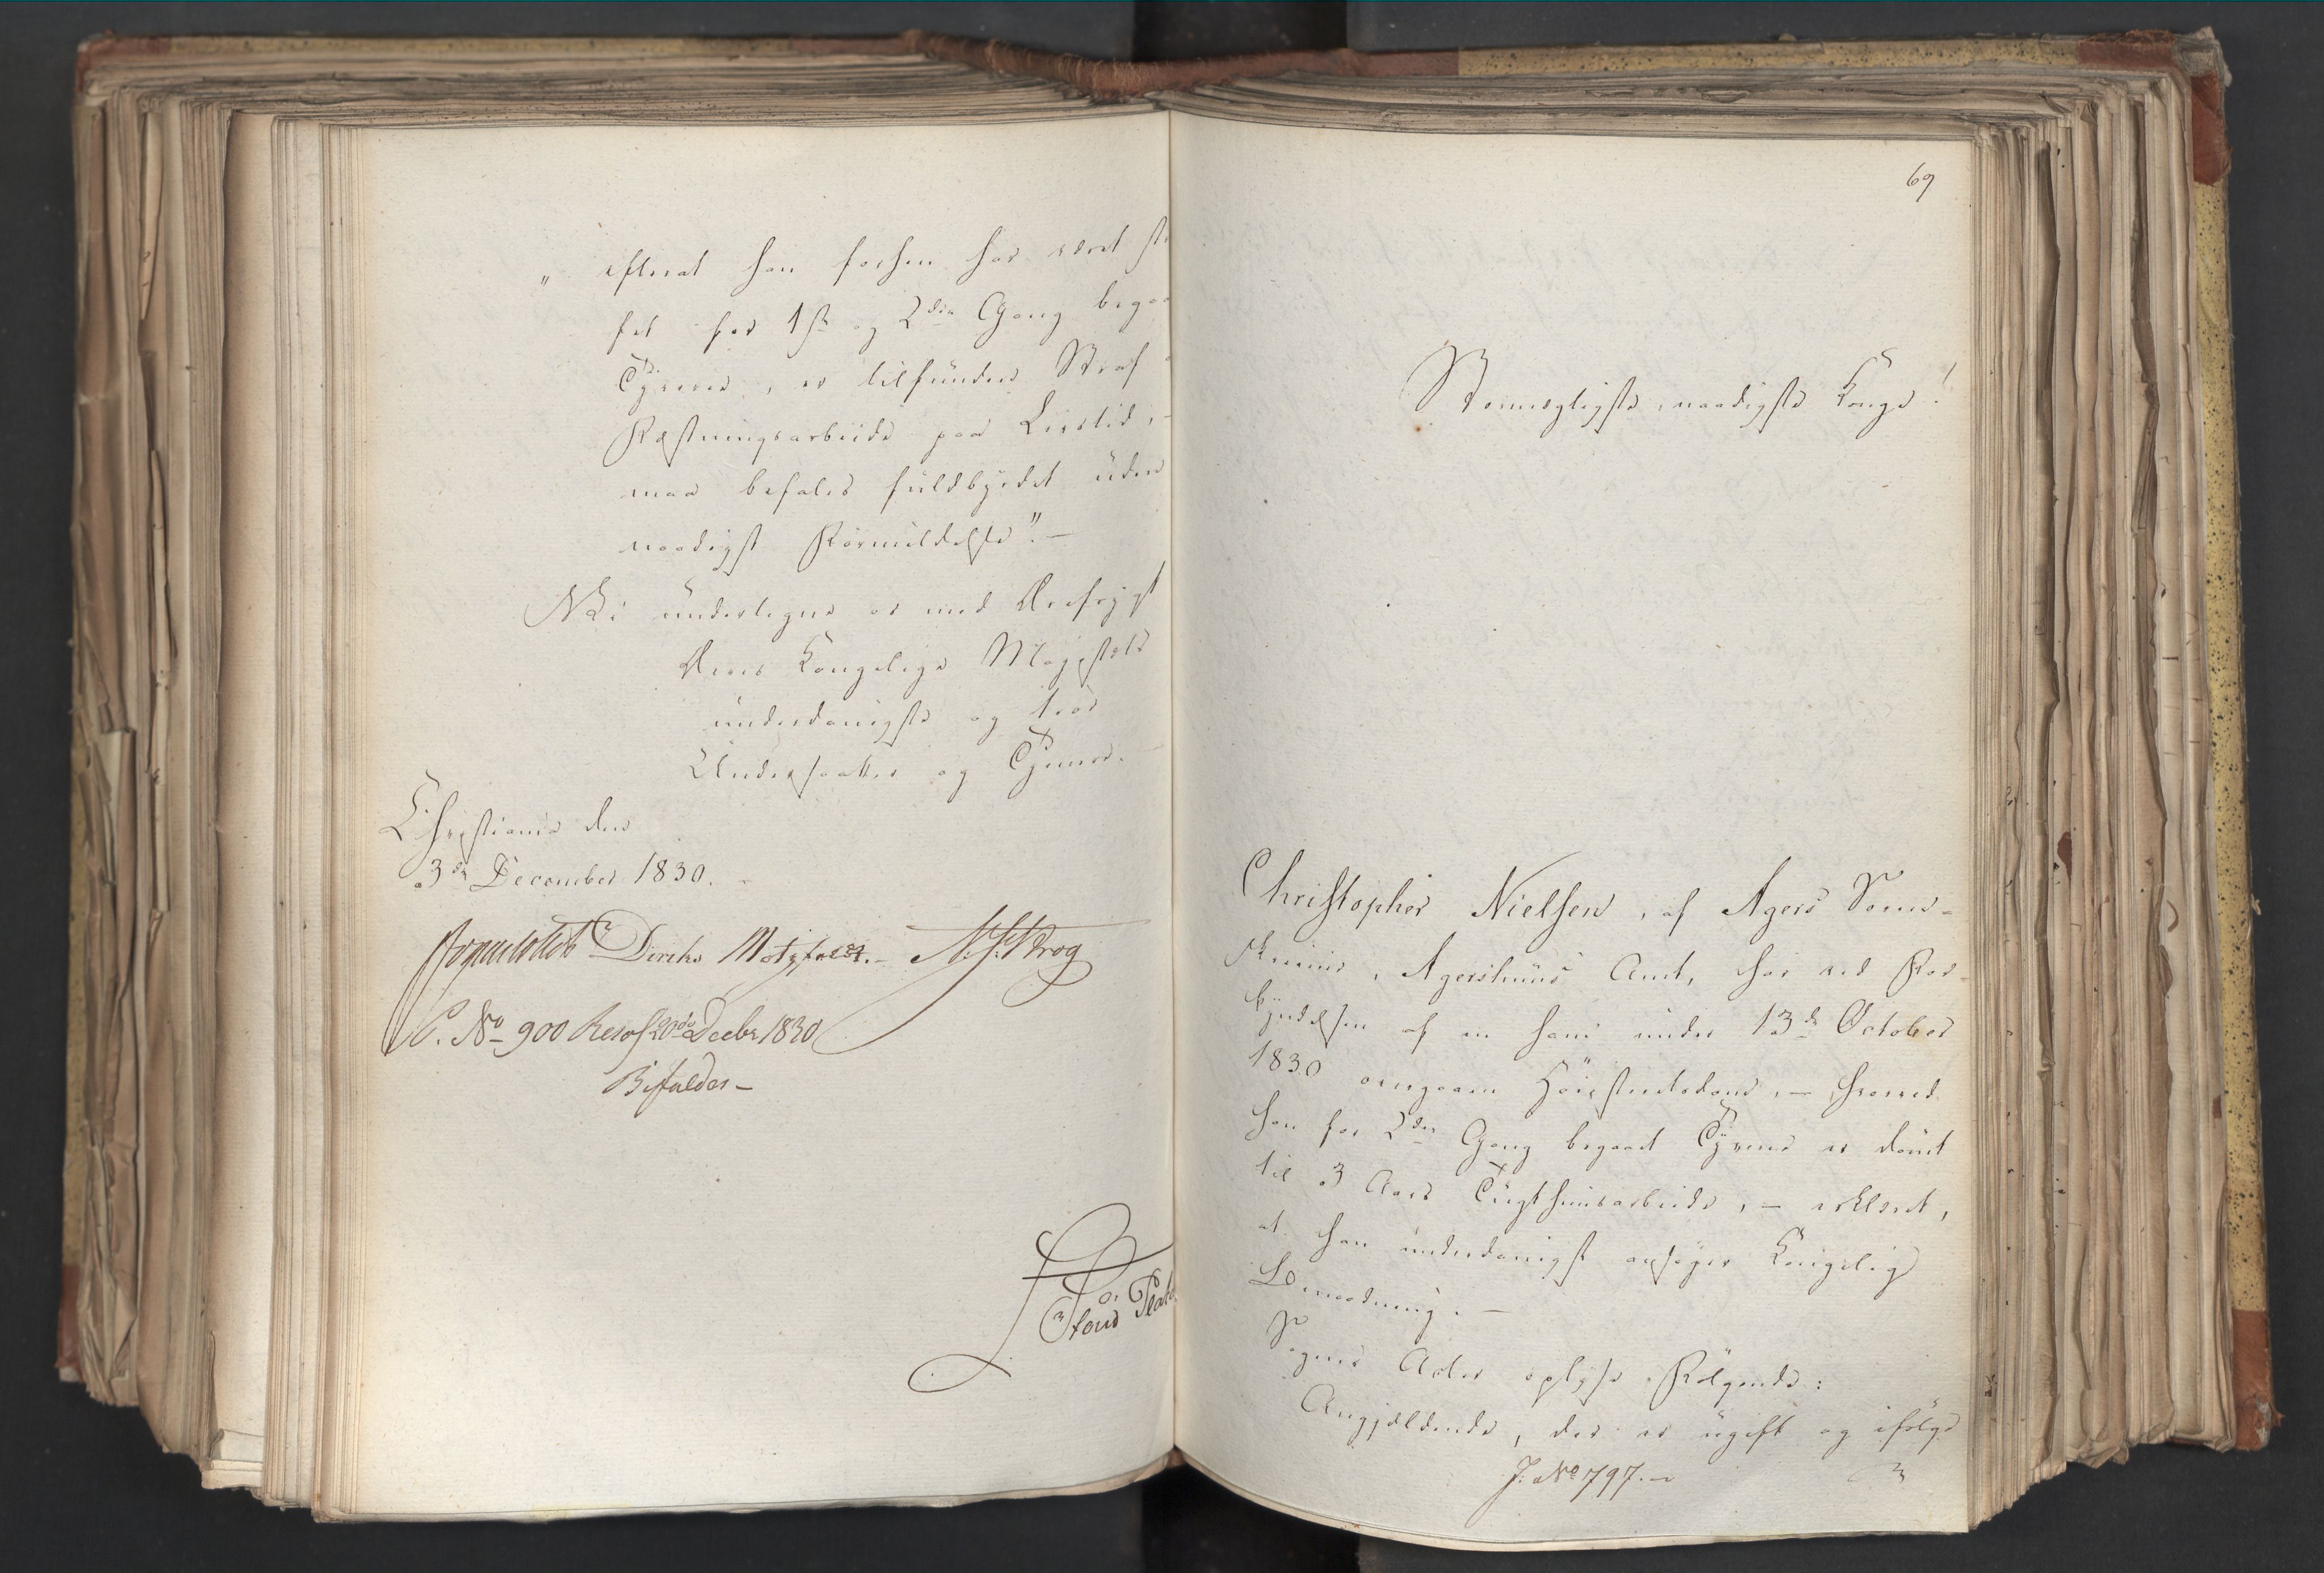 „ efterat han forhen har været st
fet for 1ste og 2den Gang bega
Tyverie, er tilfunden Straf a
Fæstningsarbeide paa Livstid, -
maa befales fuldbyrdet uden
naadigst Formildelse". -
Vi undertegne os med Ærefrygt
Deres Kongelige Majestæts
underdanigste og troe
Undersaatter og Tjenere.
Christiania den
3de December 1830.
Diriks Motzfeldt. - N. J. Krog
P. No 900 Resol 20de Decbr 1830
Bifaldes -
69
Stormægtigste, naadigste Konge!
Christopher Nielsen, af Agers Soren-
skriverie, Agershuus Amt, har ved For-
kyndelsen af en ham under 13de October
1830 overgaaen Høiesteretsdom, - hvorved
han for 2den Gang begaaet Tyverie er dømt
til 3 Aars Tugthuusarbeide, - erklæret,
at han underdanigst ansøger Kongelig
Benaadning. -
Sagens Acter oplyse Følgende:
Angjeldende, der er ugift og ifølge
J: No 797. -